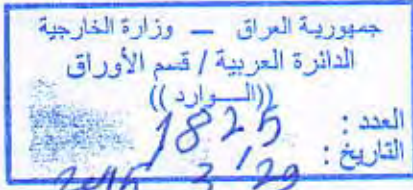 جمهورية العراق — وزارة الخارجية
الدائرة العربية / قسم الأوراق
((الـــوارد))
العدد : 1825
التاريخ : 29 / 3 / 2015